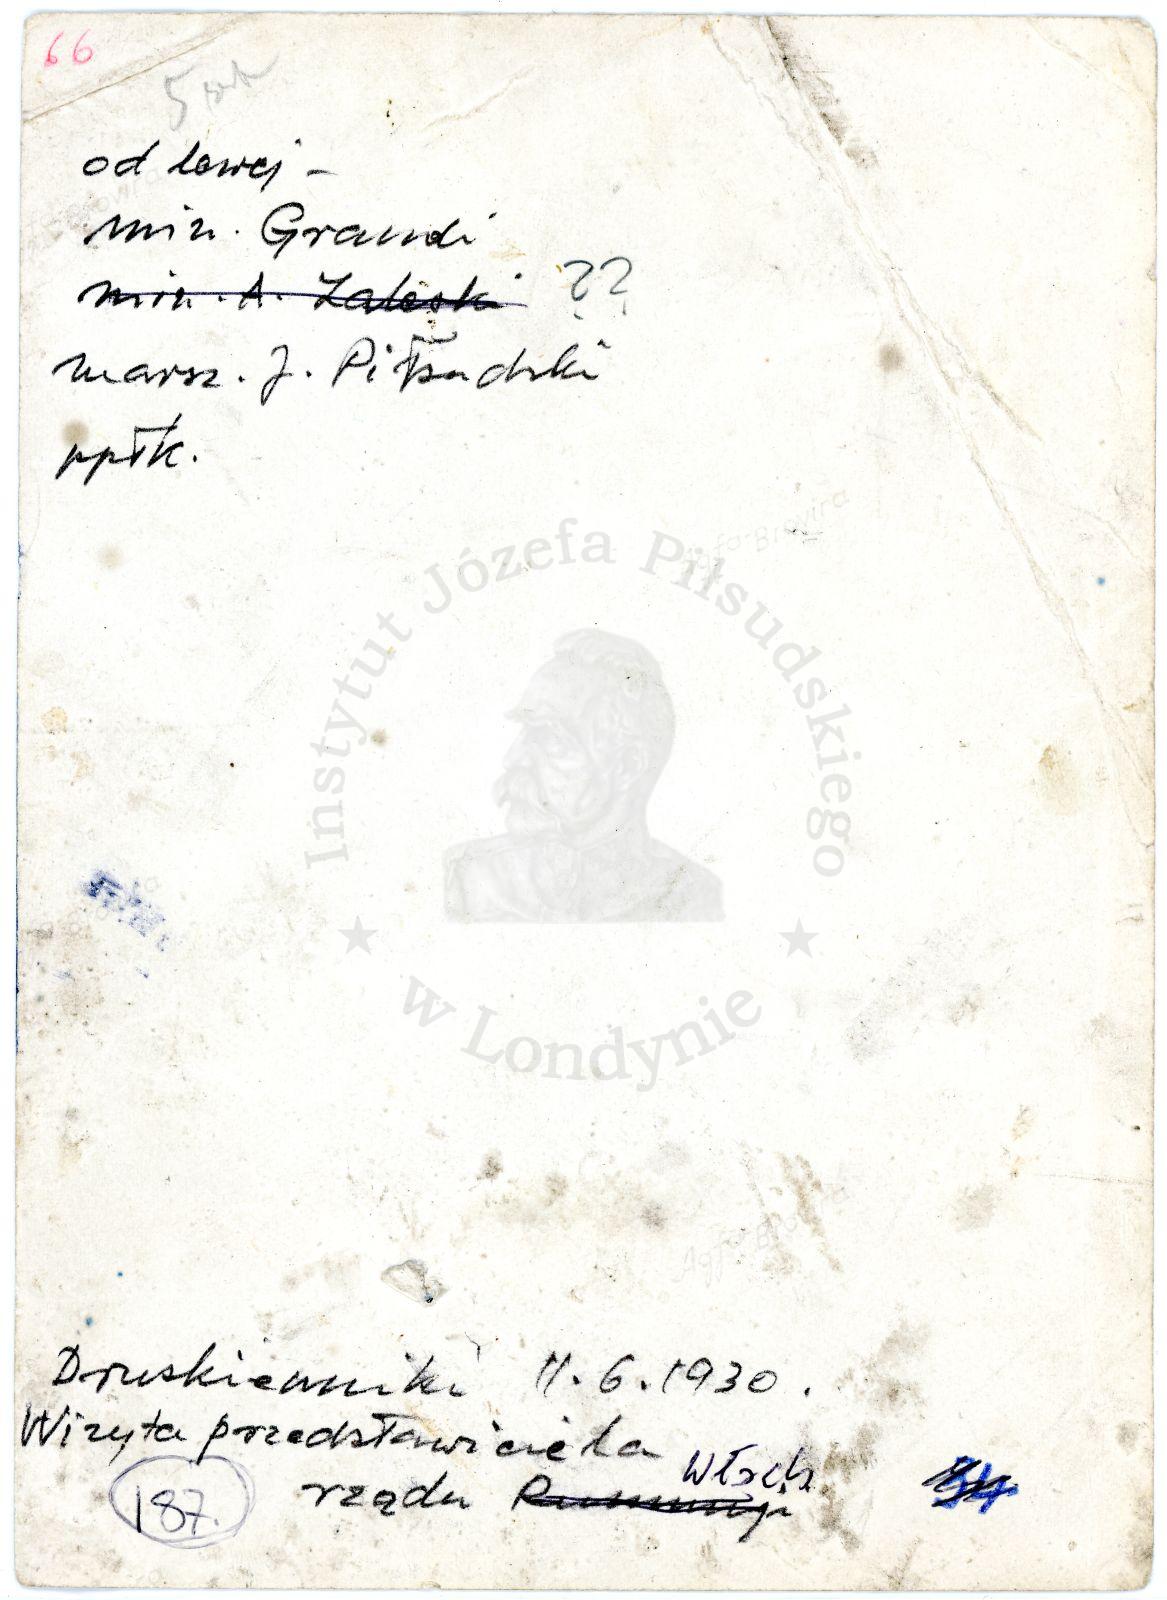 66
5
od lewej -
min. Grandi
min. A. Zaleski ??
marsz. J. Piłsudski
ppłk.
Agfa-Brovira
Instytut Józefa Piłsudskiego
w Londynie
Agfa-Brovira
Druskienniki 11.6.1930.
Wizyta przedstawiciela
Włoch
187. rządu Rumunji